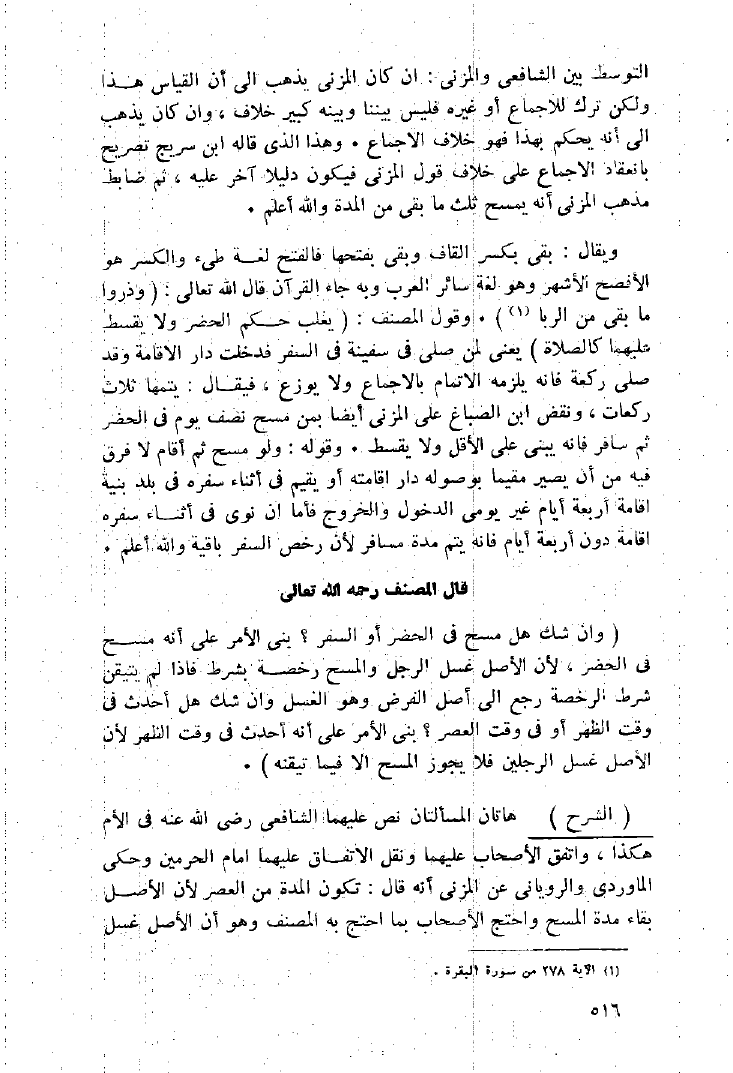 التوسط بين الشافعى والمزنى : ان كان المزنى يذهب الى أن القياس هـذا
ولكن ترك للاجماع أو غيره فليس بيننا وبينه كبير خلاف ، وان كان يذهب
الى أنه يحكم بهذا فهو خلاف الاجماع • وهذا الذى قاله ابن سريج تصريح
بانعقاد الاجماع على خلاف قول المزنى فيكون دليلا آخر عليه ، ثم ضابط
مذهب المزنى أنه يمسح ثلث ما بقى من المدة والله أعلم •
ويقال : بقى بكسر القاف وبقى بفتحها فالفتح لغـة طىء والكسر هو
الأفصح الأشهر وهو لغة سائر العرب وبه جاء القرآن قال الله تعالى : ( وذروا
ما بقى من الربا (١) ) • وقول المصنف : ( يغلب حـكم الحضر ولا يقسط
عليهما كالصلاة ) يعنى لمن صلى فى سفينة فى السفر فدخلت دار الاقامة وقد
صلى ركعة فانه يلزمه الاتمام بالاجماع ولا يوزع ، فيقـال : يتمها ثلاث
ركعات ، ونقض ابن الصباغ على المزنى أيضا بمن مسح نصف يوم فى الحضر
ثم سافر فانه يبنى على الأقل ولا يقسط • وقوله : ولو مسح ثم أقام لا فرق
فيه من أن يصير مقيما بوصوله دار اقامته أو يقيم فى أثناء سفره فى بلد بنية
اقامة أربعة أيام غير يومى الدخول والخروج فأما ان نوى فى أثنـاء سفره
اقامة دون أربعة أيام فانه يتم مدة مسافر لأن رخص السفر باقية والله أعلم •
قال المصنف رحمه الله تعالى
( وان شك هل مسح فى الحضر أو السفر ؟ بنى الأمر على أنه مسـح
فى الحضر ، لأن الأصل غسل الرجل والمسح رخصـة بشرط فاذا لم يتيقن
شرط الرخصة رجع الى أصل الفرض وهو الغسل وان شك هل أحدث فى
وقت الظهر أو فى وقت العصر ؟ بنى الأمر على أنه أحدث فى وقت الظهر لأن
الأصل غسل الرجلين فلا يجوز المسح الا فيما تيقنه ) •
( الشرح ) هاتان المسألتان نص عليهما الشافعى رضى الله عنه فى الأم
هكذا ، واتفق الأصحاب عليهما ونقل الاتفـاق عليهما امام الحرمين وحكى
الماوردى والرويانى عن المزنى أنه قال : تكون المدة من العصر لأن الأصـل
بقاء مدة المسح واحتج الأصحاب بما احتج به المصنف وهو أن الأصل غسل
(١) الآية ٢٧٨ من سورة البقرة •
٥١٦